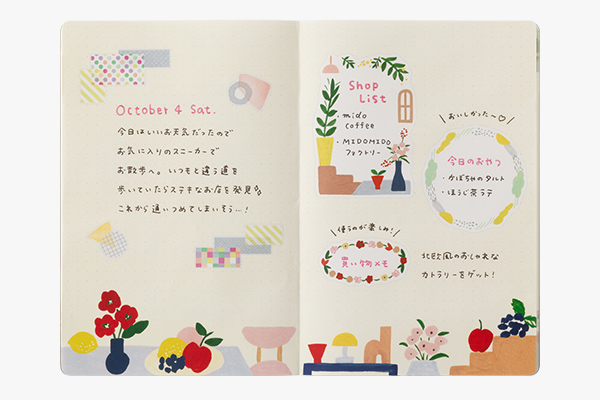 October 4 Sat.
今日はいいお天気だったので
お気に入りのスニーカーで
お散歩へ。いつもと違う道を
歩いていたらステキなお店を発見
これから通いつめてしまいそう…!
Shop
List
・mido
coffee
・MIDOMIDO
ファクトリー
\おいしかった〜♡/
今日のおやつ
・かぼちゃのタルト
・ほうじ茶ラテ
\使うのが楽しみ!/
買い物メモ
北欧風のおしゃれな
カトラリーをゲット!